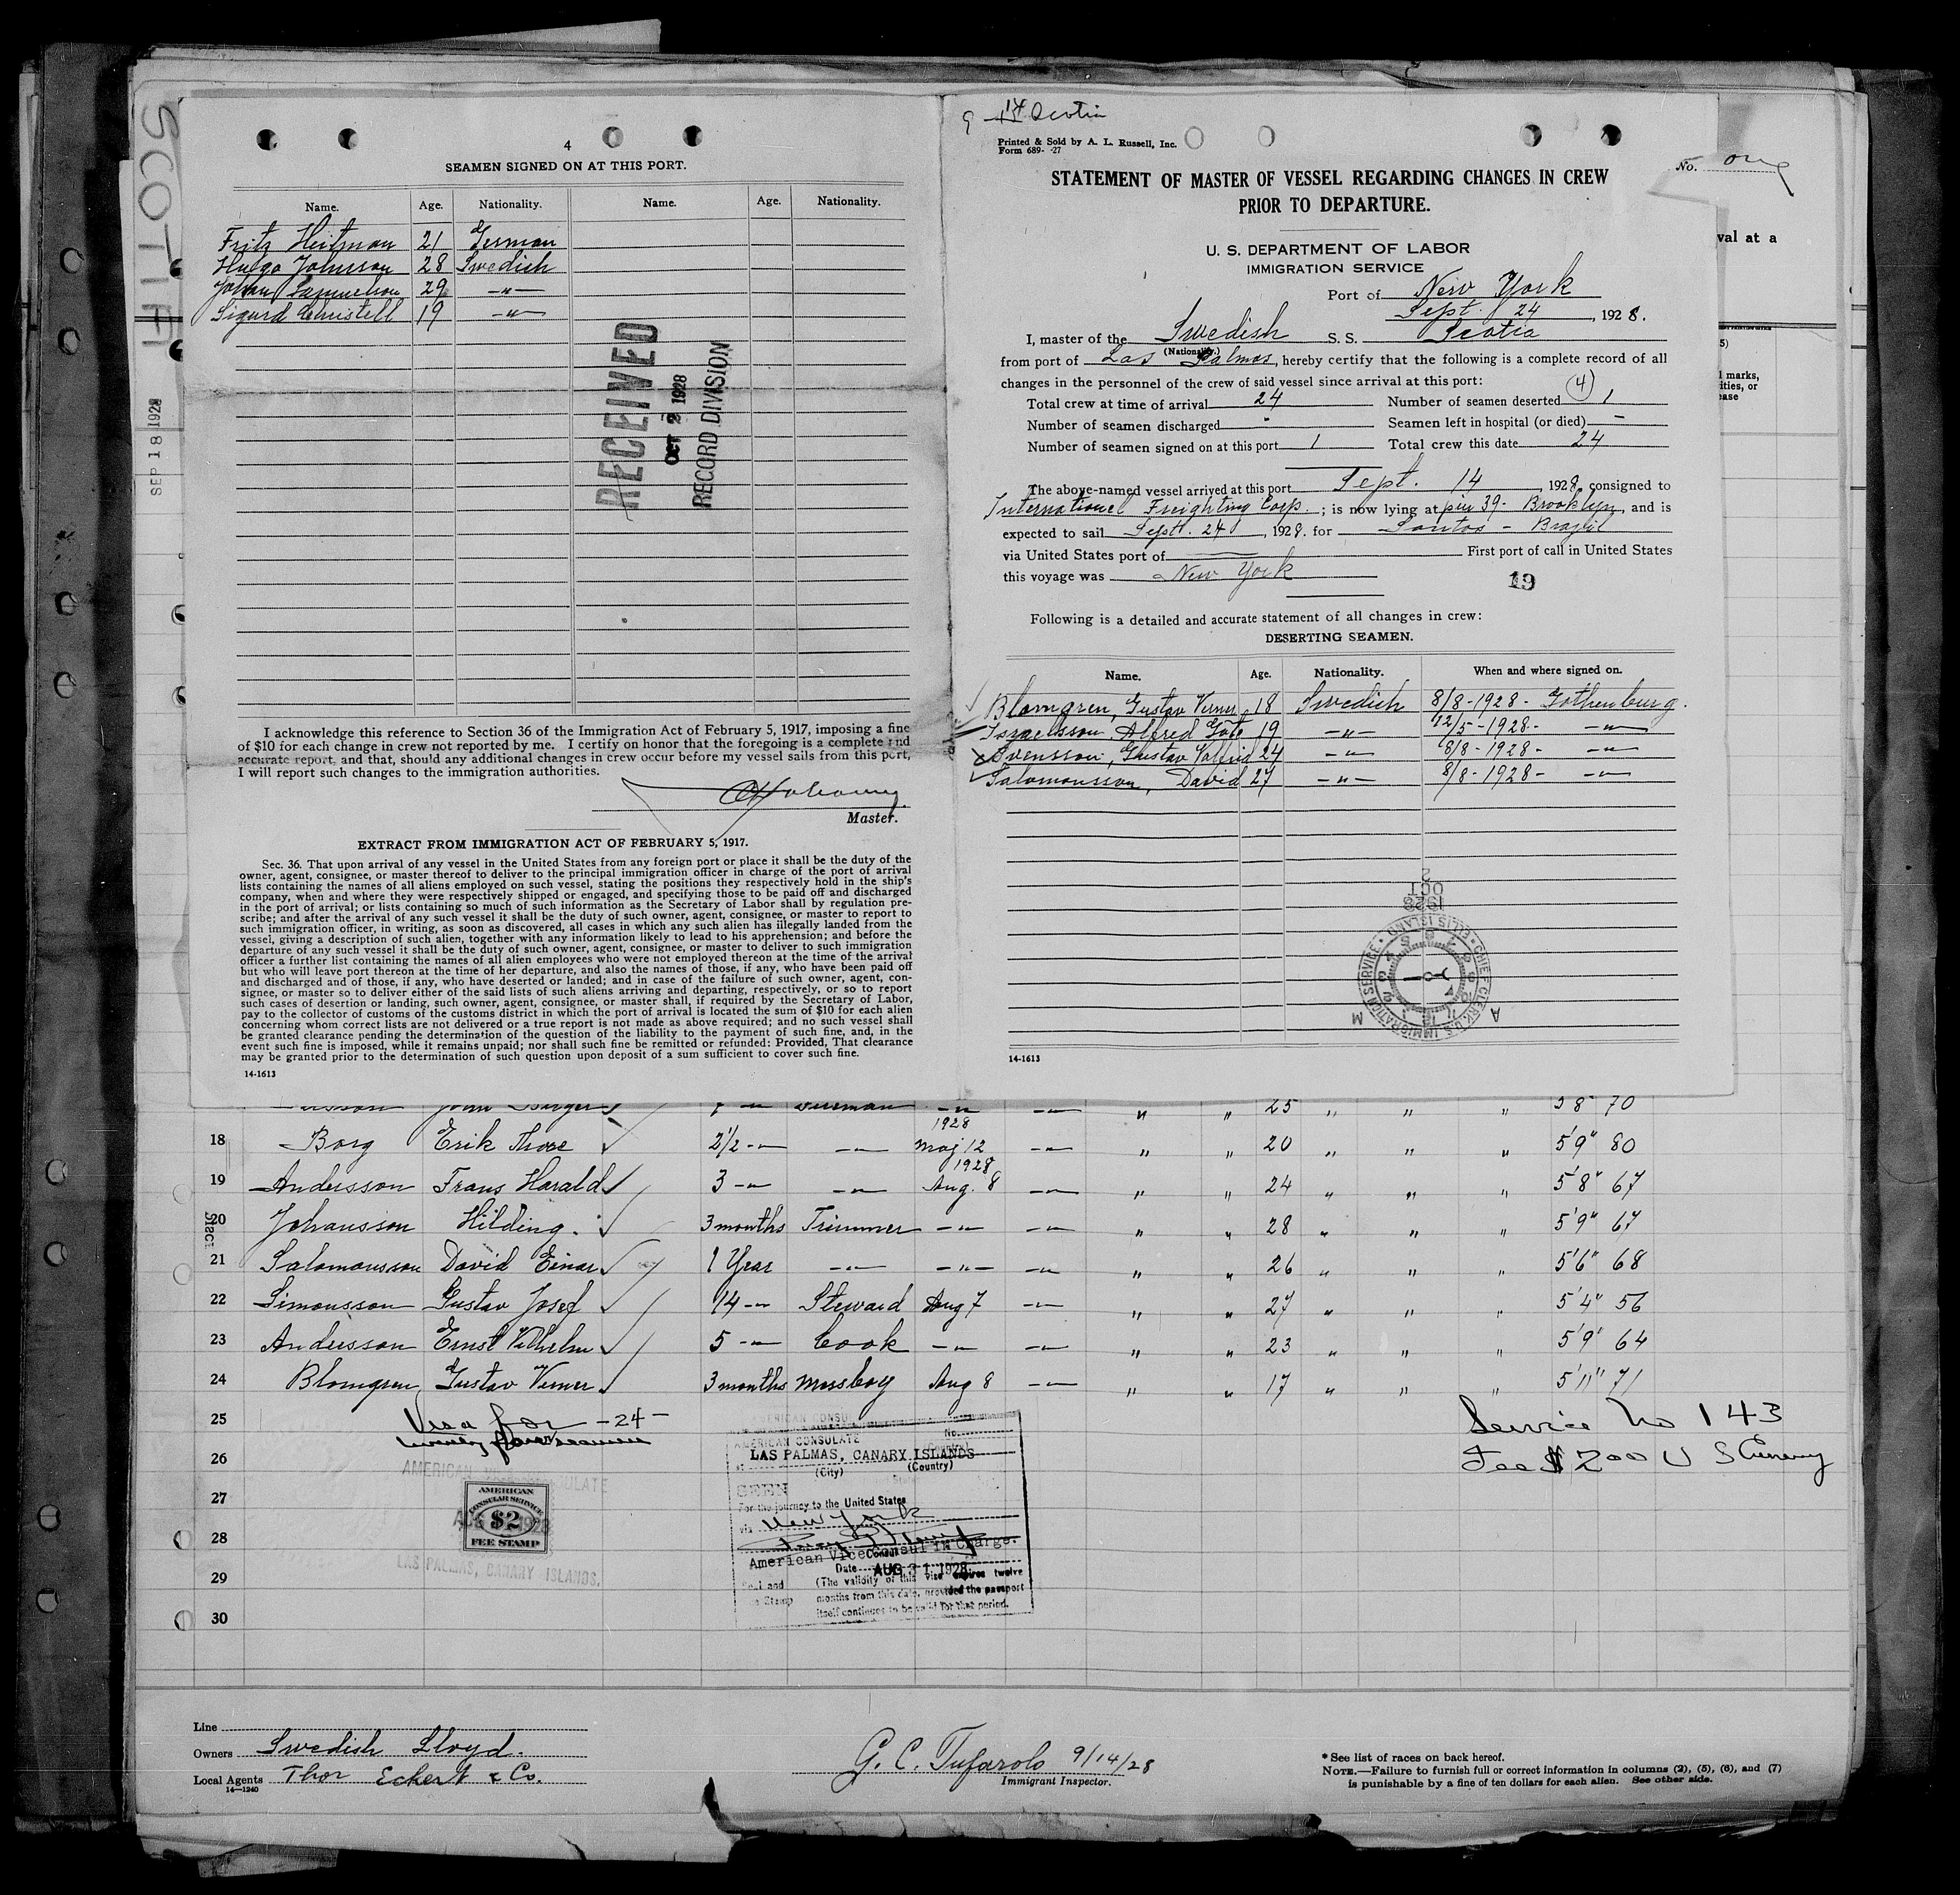 SCOTIA
SEP 18 1928
4
SEAMEN SIGNED ON AT THIS PORT.
Name. Age. Nationality. Name. Age. Nationality.
Fritz Heitman 21 German
Hugo Johnsson 28 Swedish
Johan Samuelson 29 -"-
Sigurd Christell 19 -"-
RECEIVED
OCT 2 1928
RECORD DIVISION
I acknowledge this reference to Section 36 of the Immigration Act of February 5, 1917, imposing a fine
of $10 for each change in crew not reported by me. I certify on honor that the foregoing is a complete and
accurate report, and that, should any additional changes in crew occur before my vessel sails from this port,
I will report such changes to the immigration authorities.
Master.
EXTRACT FROM IMMIGRATION ACT OF FEBRUARY 5, 1917.
Sec. 36. That upon arrival of any vessel in the United States from any foreign port or place it shall be the duty of the
owner, agent, consignee, or master thereof to deliver to the principal immigration officer in charge of the port of arrival
lists containing the names of all aliens employed on such vessel, stating the positions they respectively hold in the ship's
company, when and where they were respectively shipped or engaged, and specifying those to be paid off and discharged
in the port of arrival; or lists containing so much of such information as the Secretary of Labor shall by regulation pre-
scribe; and after the arrival of any such vessel it shall be the duty of such owner, agent, consignee, or master to report to
such immigration officer, in writing, as soon as discovered, all cases in which any such alien has illegally landed from the
vessel, giving a description of such alien, together with any information likely to lead to his apprehension; and before the
departure of any such vessel it shall be the duty of such owner, agent, consignee, or master to deliver to such immigration
officer a further list containing the names of all alien employees who were not employed thereon at the time of the arrival
but who will leave port thereon at the time of her departure, and also the names of those, if any, who have been paid off
and discharged and of those, if any, who have deserted or landed; and in case of the failure of such owner, agent, con-
signee, or master so to deliver either of the said lists of such aliens arriving and departing, respectively, or so to report
such cases of desertion or landing, such owner, agent, consignee, or master shall, if required by the Secretary of Labor,
pay to the collector of customs of the customs district in which the port of arrival is located the sum of $10 for each alien
concerning whom correct lists are not delivered or a true report is not made as above required; and no such vessel shall
be granted clearance pending the determination of the question of the liability to the payment of such fine, and, in the
event such fine is imposed, while it remains unpaid; nor shall such fine be remitted or refunded: Provided, That clearance
may be granted prior to the determination of such question upon deposit of a sum sufficient to cover such fine.
14-1613
9 14 Scotia
Printed & Sold by A. L. Russell, Inc.
Form 689- -27
STATEMENT OF MASTER OF VESSEL REGARDING CHANGES IN CREW
PRIOR TO DEPARTURE.
U. S. DEPARTMENT OF LABOR
IMMIGRATION SERVICE
Port of New York
Sept. 24, 1928.
I, master of the Swedish S. S. Scotia
(Nationality.)
from port of Las Palmas, hereby certify that the following is a complete record of all
changes in the personnel of the crew of said vessel since arrival at this port:
(4)
Total crew at time of arrival 24 Number of seamen deserted 1
Number of seamen discharged - Seamen left in hospital (or died) -
Number of seamen signed on at this port 1 Total crew this date 24
The above-named vessel arrived at this port Sept. 14, 1928, consigned to
International Freighting Corp.; is now lying at pier 39- Brooklyn, and is
expected to sail Sept. 24, 1928. for Santos - Brazil
via United States port of First port of call in United States
this voyage was New York
19
Following is a detailed and accurate statement of all changes in crew:
DESERTING SEAMEN.
Name. Age. Nationality. When and where signed on.
Blomgren, Gustav Verner 18 Swedish 8/8-1928- Gothenburg.
Israelsson, Alfred Göte 19 -"- 12/5-1928- -"-
Svensson, Gustav Valfrid 24 -"- 8/8-1928- -"-
Salomonsson, David 27 -"- 8/8-1928- -"-
1928
OCT
2
CHIEF CLERK U.S. IMMIGRATION SERVICE • ELLIS ISLAND •
A M
14-1613
No. one
val at a
5)
l marks,
ities, or
ease
John Birger Fireman -"- -"- " " 25 " " " 5'8" 70
18 Borg Erik Thore 2 1/2 -"- -"- 1928 Maj 12 -"- " " 20 " " " 5'9" 80
19 Andersson Frans Harald 3 -"- -"- 1928 Aug. 8 -"- " " 24 " " " 5'8" 67
20 Johansson Hilding. 3 months Trimmer -"- -"- " " 28 " " " 5'9" 67
21 Salomonsson David Einar 1 Year -"- -"- -"- " " 26 " " " 5'6" 68
22 Simonsson Gustav Josef 14 -"- Steward Aug 7 -"- " " 27 " " " 5'4" 56
23 Andersson Ernst Vilhelm 5 -"- Cook -"- -"- " " 23 " " " 5'9" 64
24 Blomgren, Gustav Verner 3 months Messboy Aug 8 -"- " " 17 " " " 5'11" 71
25 Visa for -24-
twenty four seamen
26
27
28
29
30
AMERICAN CONSULATE
LAS PALMAS, CANARY ISLANDS.
AMERICAN
CONSULAR SERVICE
$2
FEE STAMP
AMERICAN CONSULATE
No.
LAS PALMAS, CANARY ISLANDS
(City) (Country)
SEEN
For the journey to the United States
via New York
American Vice Consul in Charge.
Date AUG 31 1928
(The validity of this visa expires twelve
months from this date, provided the passport
itself continues to be valid for that period.
Seal and
Stamp
Service No 143
Fee $ 2.00 U S Currency
Line
Owners Swedish Lloyd.
Local Agents Thor Eckert & Co.
14-1240
G. C. Tufarolo 9/14/28
Immigrant Inspector.
* See list of races on back hereof.
NOTE.—Failure to furnish full or correct information in columns (2), (5), (6), and (7)
is punishable by a fine of ten dollars for each alien. See other side.